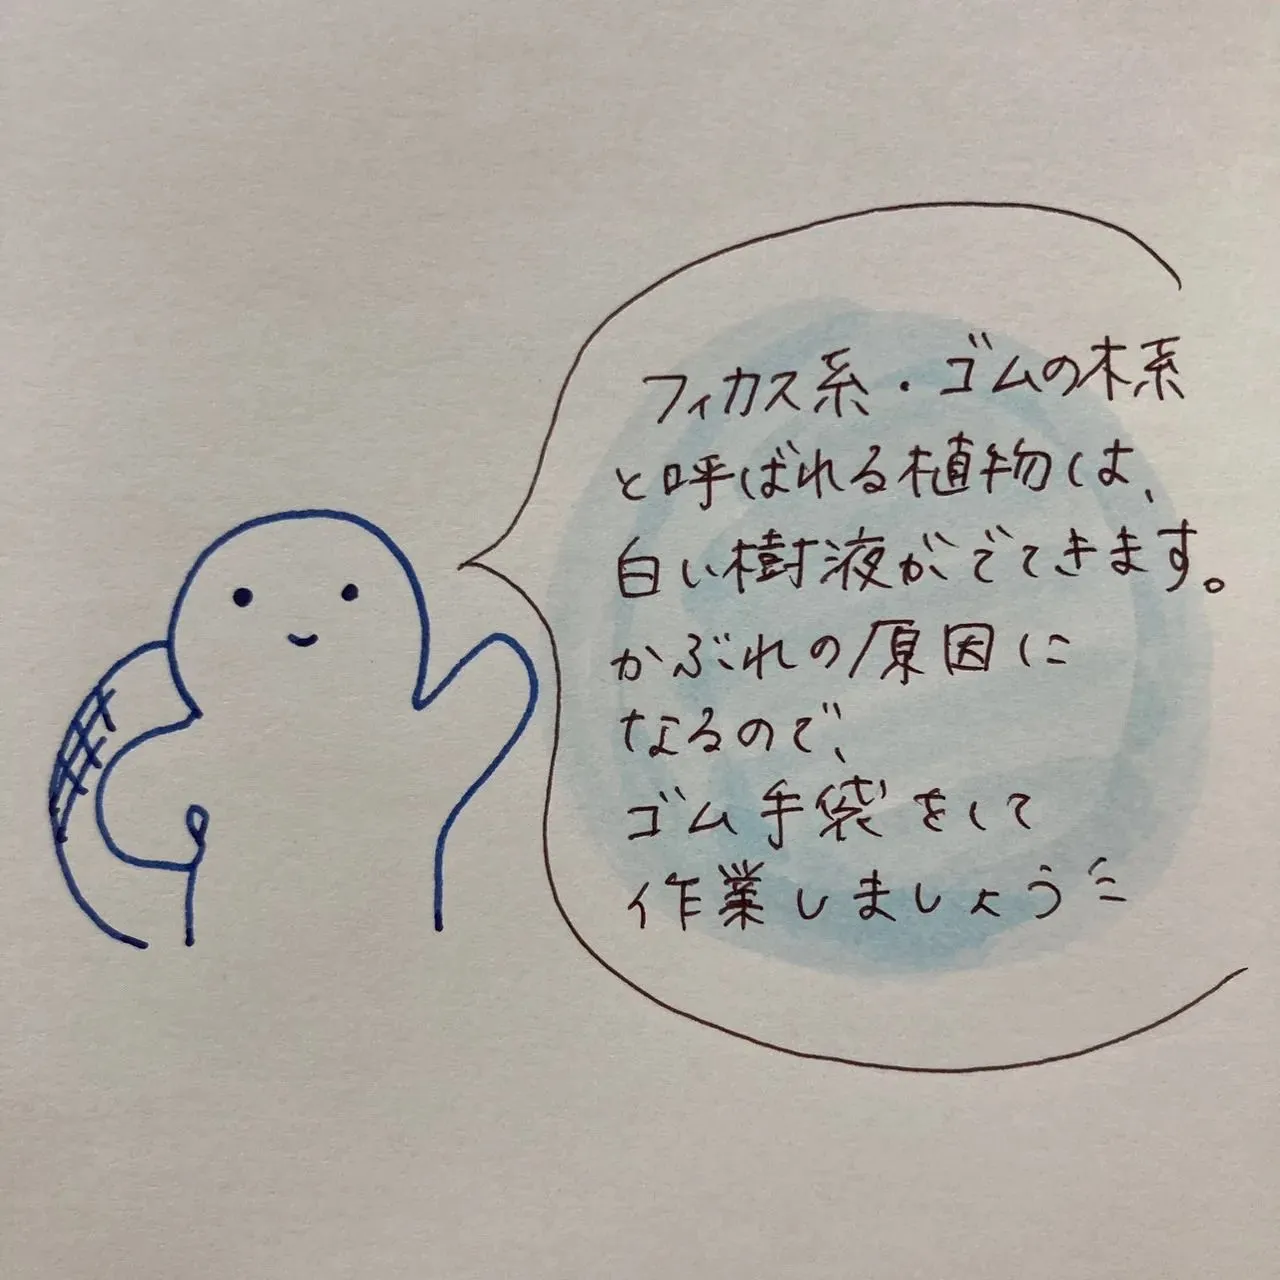 フィカス系・ゴムの木系
と呼ばれる植物は、
白い樹液がでてきます。
かぶれの原因に
なるので、
ゴム手袋をして
作業しましょう